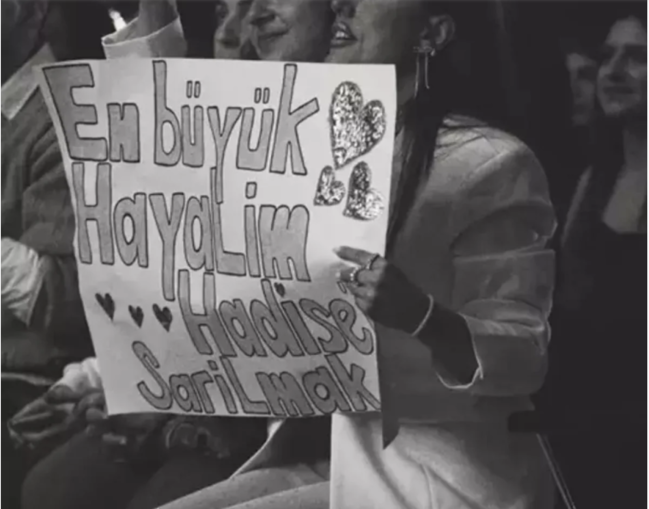 En büyük
Hayalim
Hadise'
Sarilmak